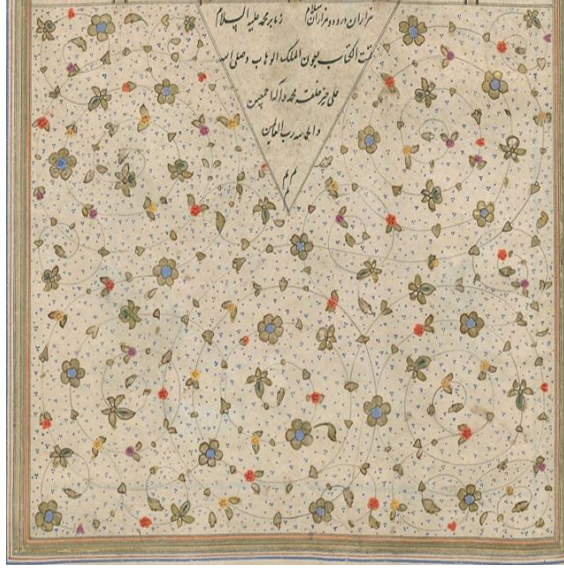 هزاران درود و هزاران سلام ز ما بر محمد علیه السلام
تمت الکتاب بعون الملک الوهاب و صلی الله
علی خیر خلقه محمد و آله اجمعین
و الحمد لله رب العالمین